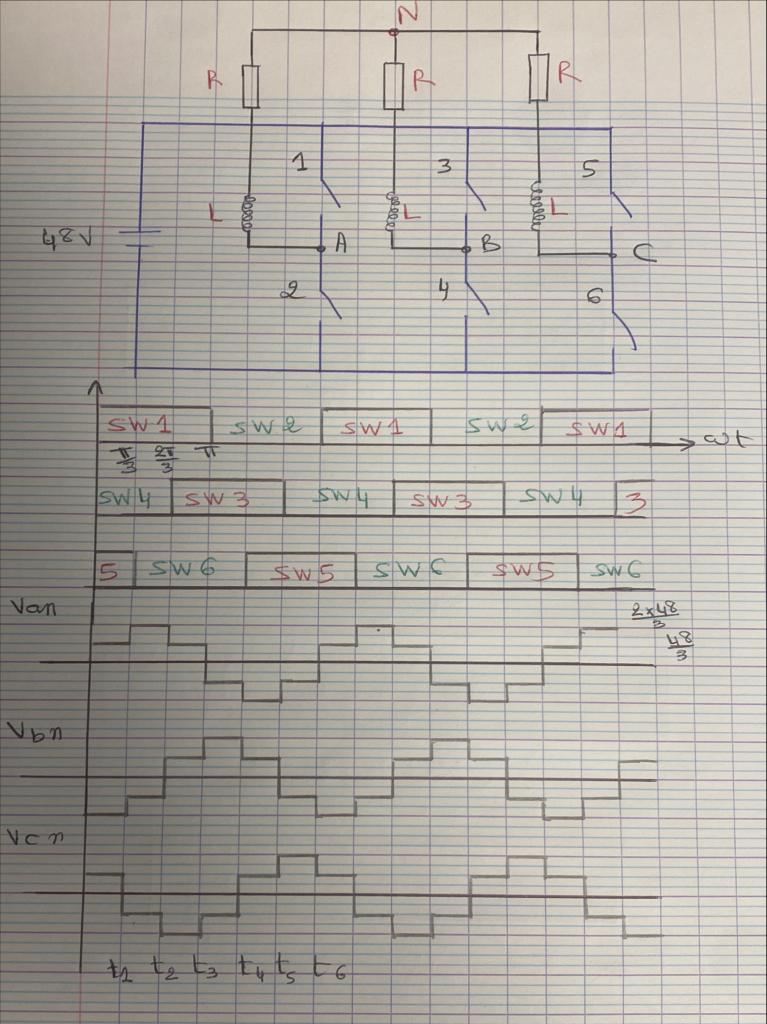 N
R R R
1 3 5
L L L
48V A B C
2 4 6
SW1 SW2 SW1 SW2 SW1
π/3 2π/3 π ωt
SW4 SW3 SW4 SW3 SW4 3
5 SW6 SW5 SW6 SW5 SW6
Van 2×48/3
48/3
Vbn
Vcn
t1 t2 t3 t4 t5 t6